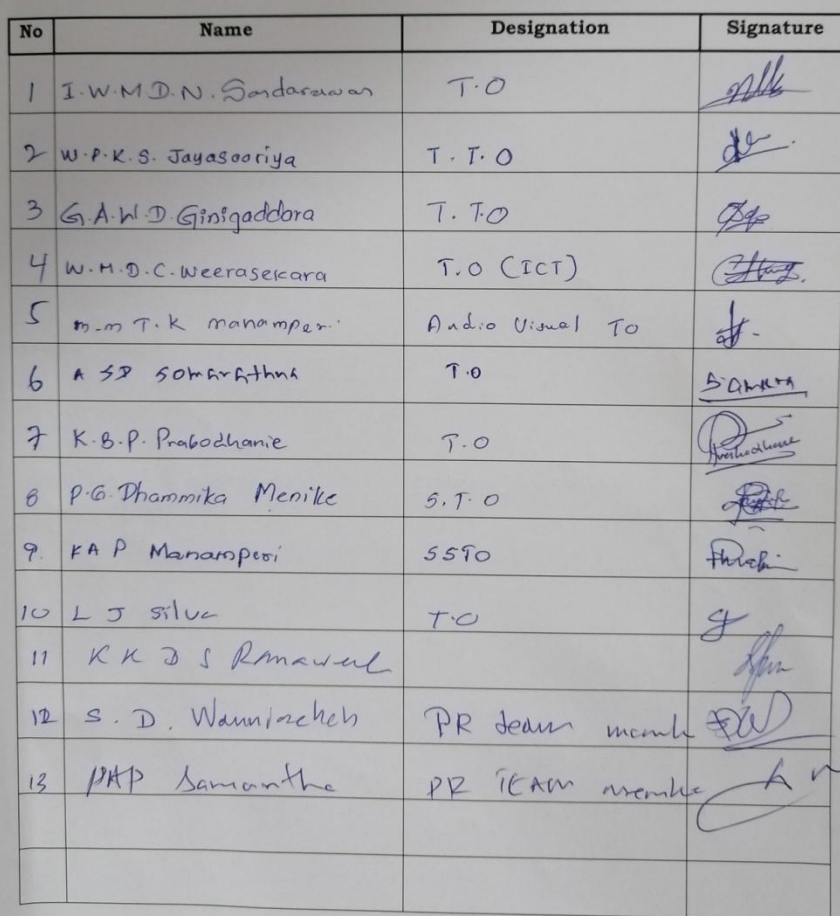 No Name Designation Signature
1 I.W.M.D.N. Sandaruwan T.O
2 W.P.K.S. Jayasooriya T.T.O
3 G.A.W.D. Ginigaddara T.T.O
4 W.M.D.C. Weerasekara T.O (ICT)
5 M.M T.K Manamperi Audio Visual TO
6 A SD Somarathna T.O
7 K.B.P. Prabodhanie T.O
8 P.G. Dhammika Menike S.T.O
9. KAP Manamperi SSTO
10 L J Silva T.O
11 K K D S
12 S. D. PR team
13 PAP Samantha PR TEAM